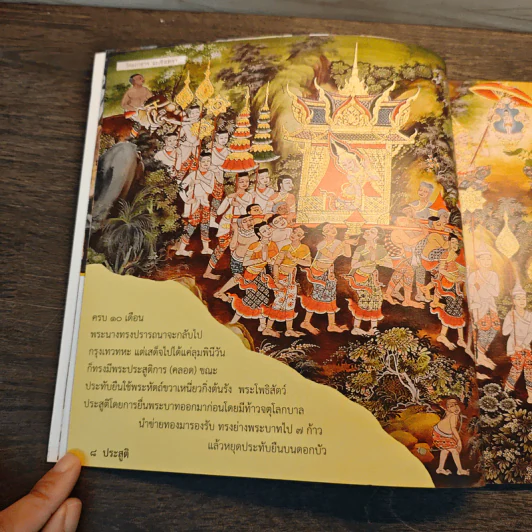 ครบ ๑๐ เดือน
พระนางทรงปรารถนาจะกลับไป
กรุงเทวทหะ แต่เสด็จไปได้แค่ลุมพินีวัน
ก็ทรงมีพระประสูติการ (คลอด) ขณะ
ประทับยืนใช้พระหัตถ์ขวาเหนี่ยวกิ่งต้นรัง พระโพธิสัตว์
ประสูติโดยการยื่นพระบาทออกมาก่อนโดยมีท้าวจตุโลกบาล
นำข่ายทองมารองรับ ทรงย่างพระบาทไป ๗ ก้าว
แล้วหยุดประทับยืนบนดอกบัว
๘ ประสูติ